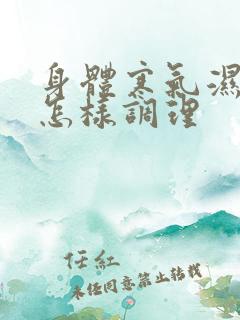 身體寒氣濕
怎樣調理
任紅
未经同意禁止转载